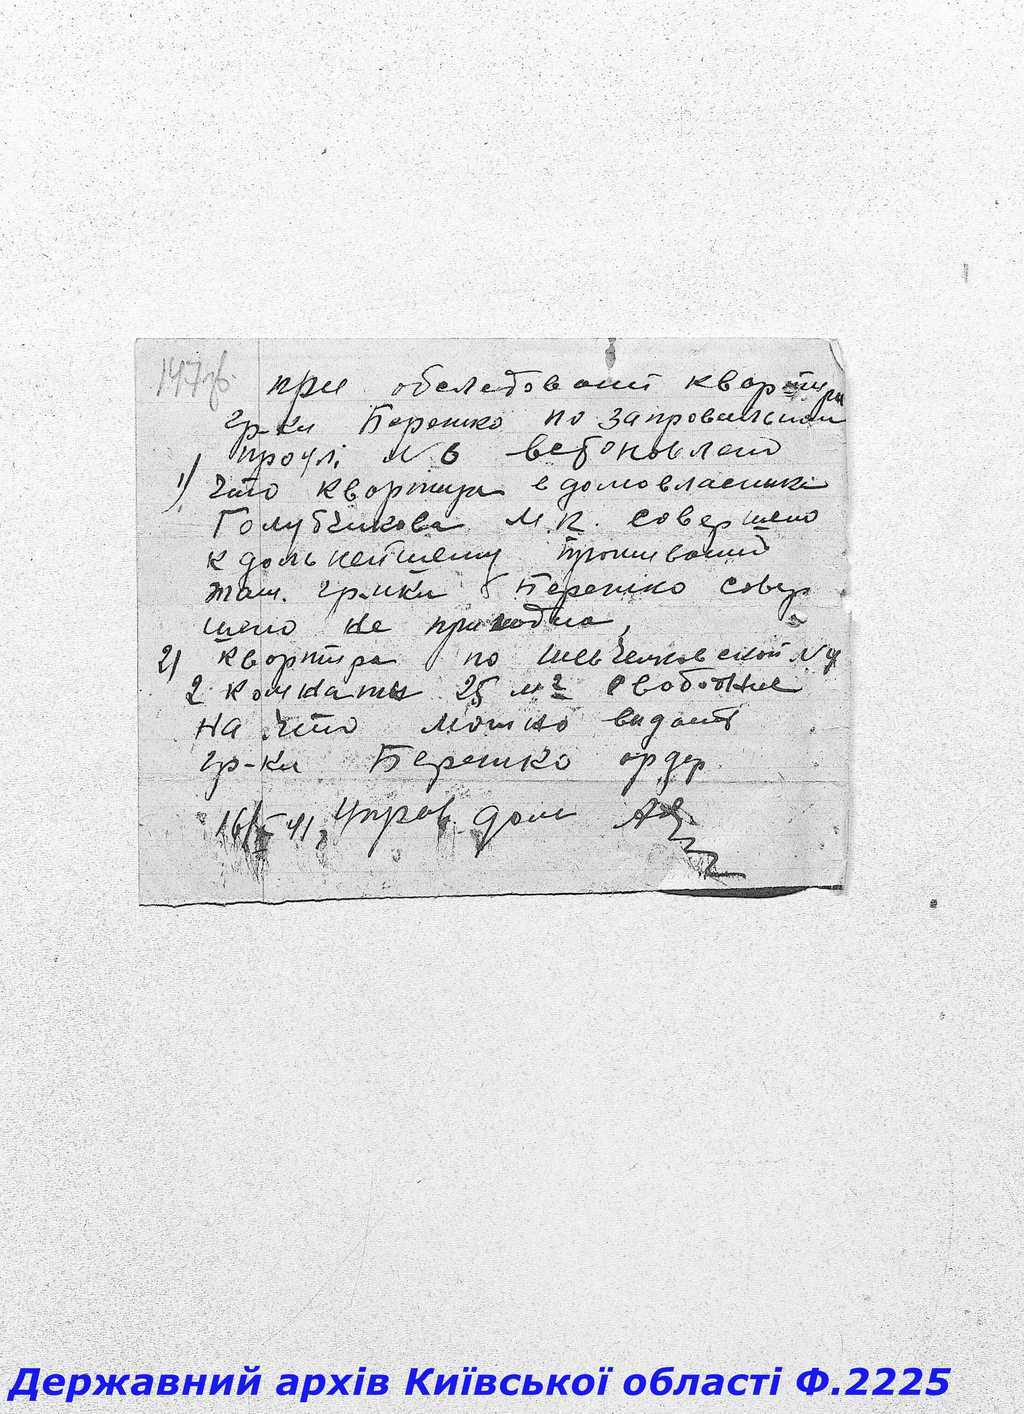 147об.
при обследовании квартири
гр-ки Берешко по
проул. N 6 встоновлено
1) Что квартира в домовласника
Голубчикова М.К. совершено
к дольнейшему проживаний
гр-ки Берешко совер
шено не пригодна,
2) квартира по Шевченковской N
2 комнаты 25 м2 свободние
на что можно видать
гр-ки Берешко ордер.
16/X-41, Управ. дом
Державний архів Київської області Ф.2225